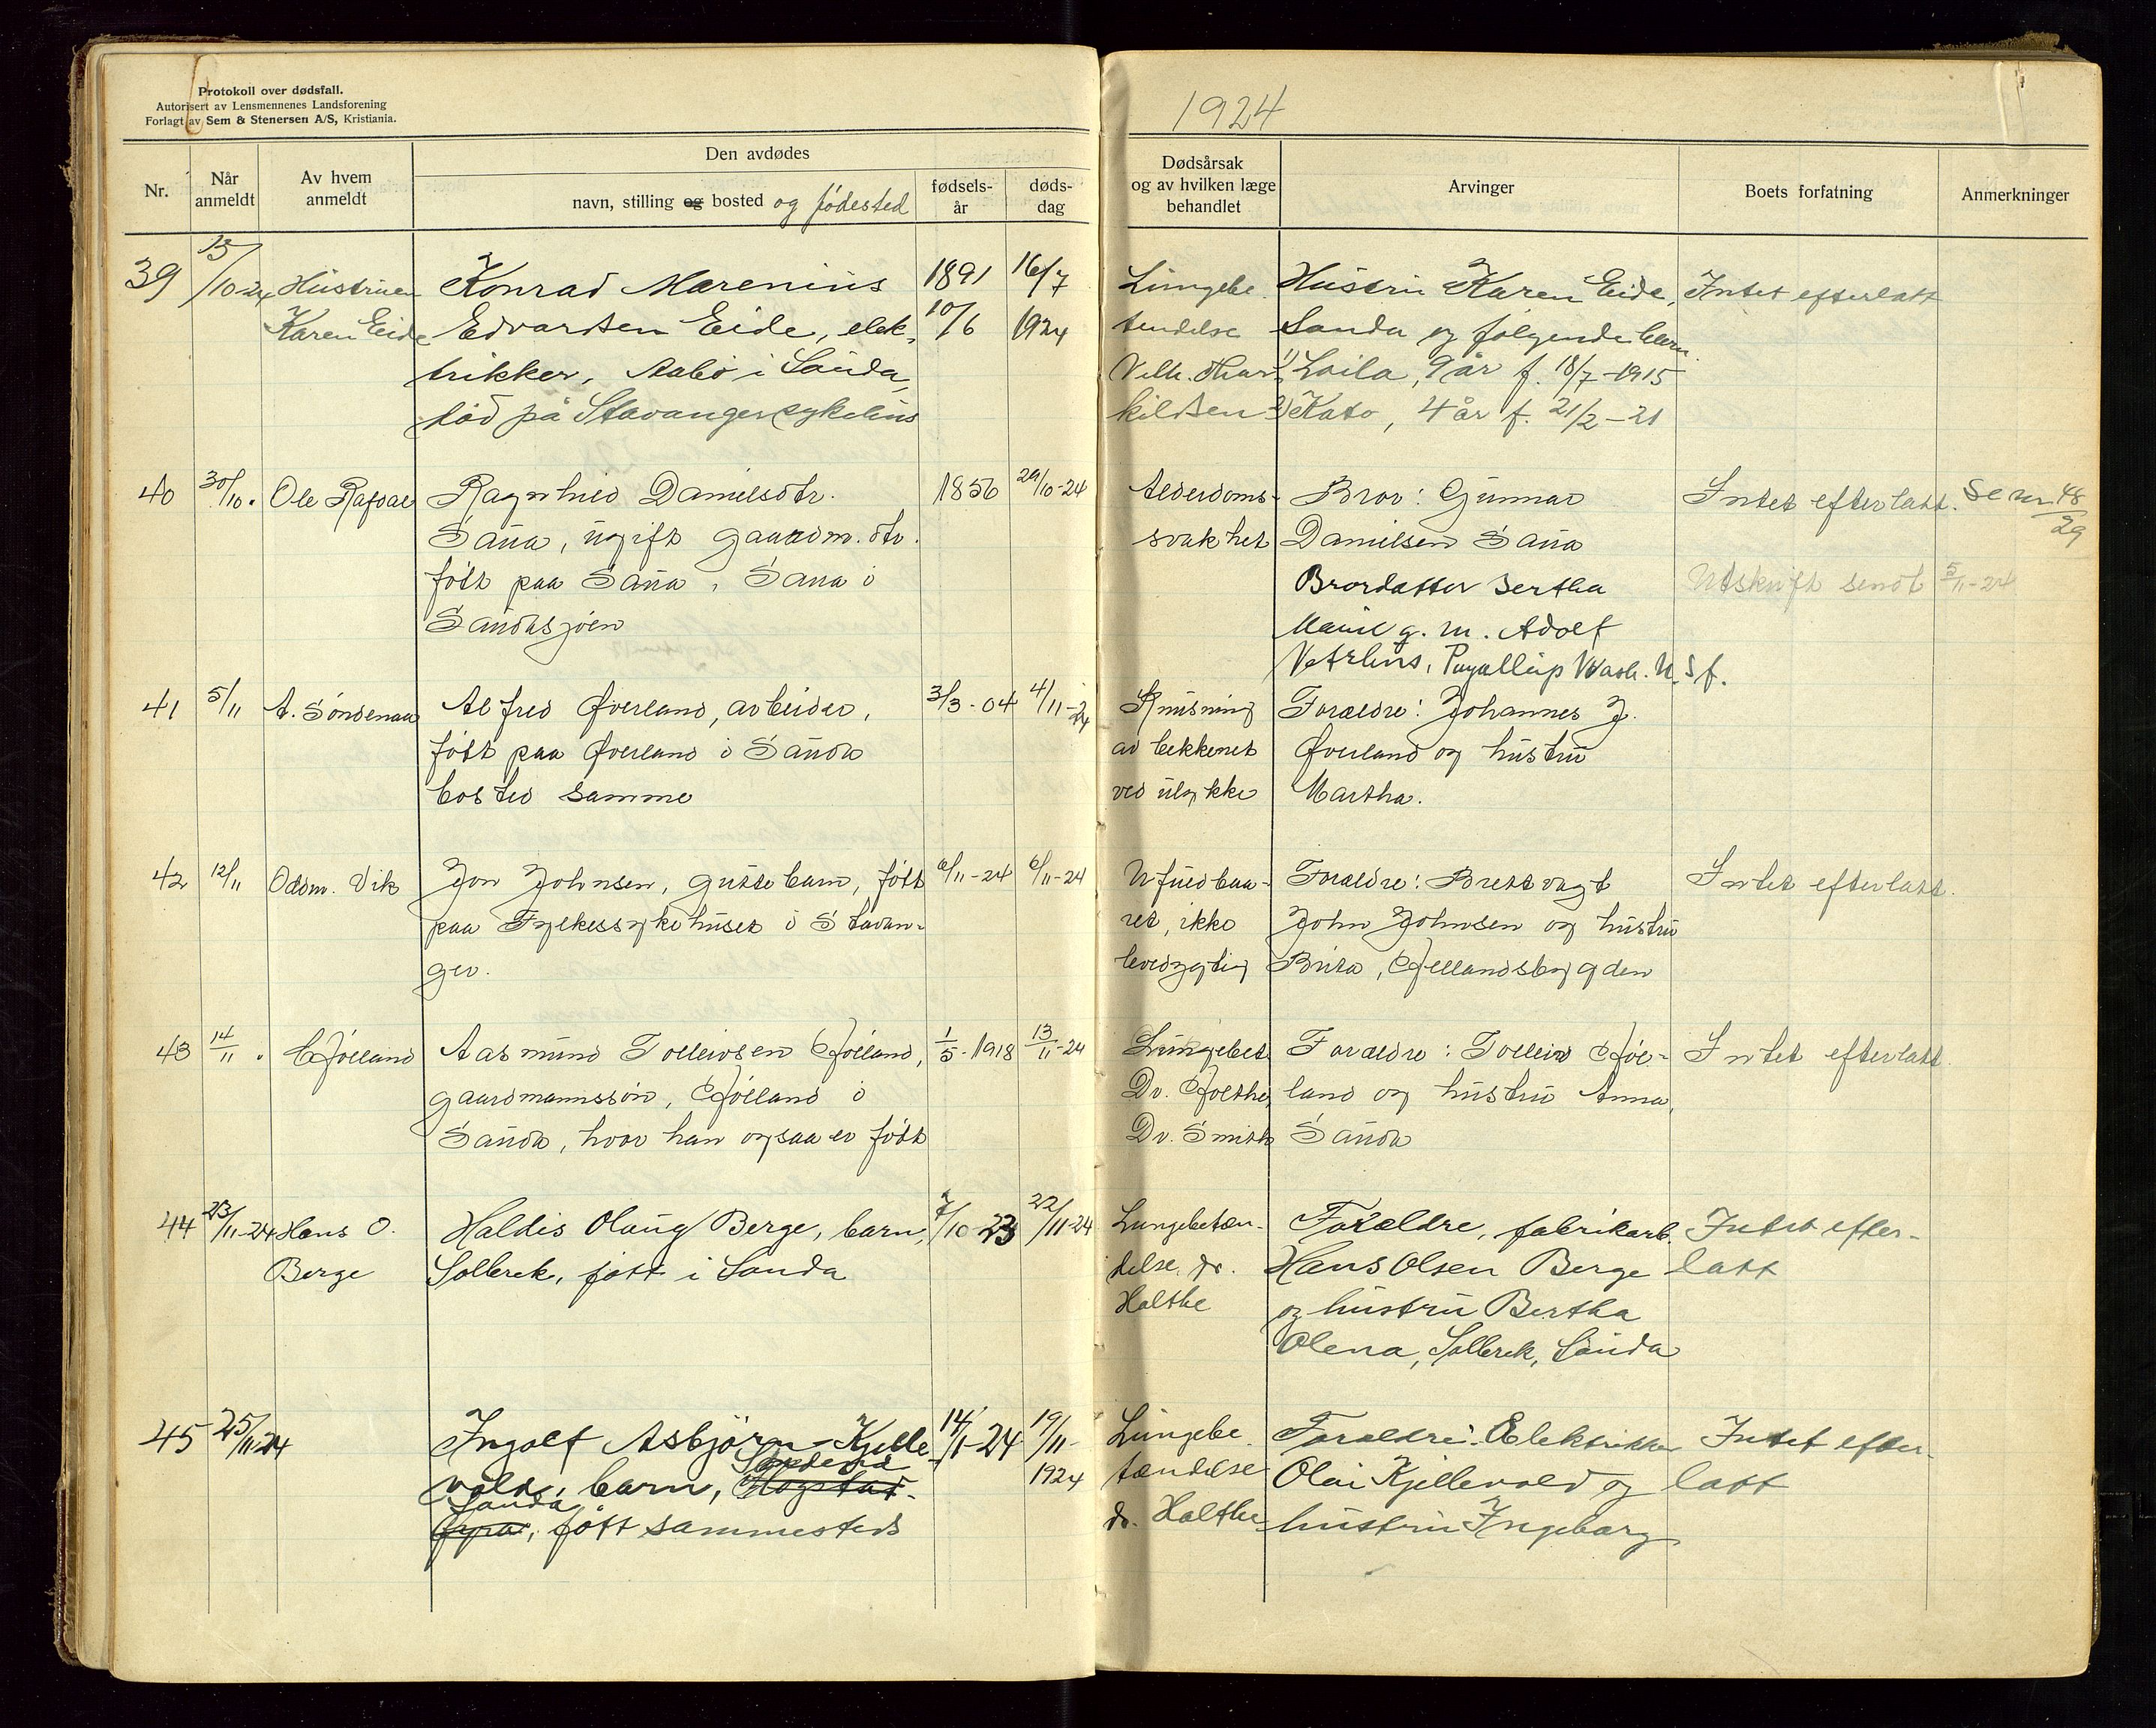 Protokoll over dødsfall.
Autorisert av Lensmennenes Landsforening
Forlagt av Sem & Stenersen A/S, Kristiania.
1924
Nr.
Når anmeldt
Av hvem anmeldt
Den avdødes
navn, stilling og bosted og fødested
fødsels-år
døds-dag
Dødsårsak og av hvilken læge behandlet
Arvinger
Boets forfatning
Anmerkninger
39 13/10-24 Hustruen Konrad Marenius 1891 16/7 Lungebe Hustru Karen Eide, Intet efterlatt
Karen Eide Edvardsen Eide, elek- 10/6 1924 tendelse Sauda og følgende barn
trikker, Aabö i Sauda, Vilh. Thor 1) Laila, 9 år f. 18/7-1915
död på Stavanger sykehus kildsen 2) Kato, 4 år f. 21/2-21
40 30/10. Ole Rafdal Ragnhild Danielsdtr. 1856 29/10-24 Alderdoms- Bror: Gunnar Intet efterlatt. Se nr 48/29
Saua, ugift gaardm. dtr. svakhet Danielsen Saua
født paa Saua, Saua i Brordatter Bertha Utskrift sendt 5/11-24
Saudasjøen Marie g. m. Adolf
Puyallup Wash. U. S.
41 5/11 A. Söndenaa Alfred Øverland, arbeider, 3/3-04 4/11-24 Knusning Foreldre: Johannes J.
født paa Øverland i Sauda av bekkenet Øverland og hustru
bosted samme ved ulykke Martha.
42 12/11 Oddm. Vik Jon Johnsen, guttebarn, født 6/11-24 6/11-24 Ufuldbaa- Foreldre: Brettvagt Intet efterlatt.
paa Fylkessykehuset i Stavan- ret, ikke John Johnsen og hustru
ger. levedygtig Brita, Hellandsbygden
43 14/11. Aasmund Tolleivsen 1/5-1918 13/11-24 Lungebet Foreldre: Tolleiv Intet efterlatt.
gaardmannssøn, i Dr. land og hustru Anna,
Sauda, hvor han ogsaa er født Dr. Smith Sauda
44 23/11-24 Hans O. Haldis Olaug Berge, barn, 7/10-23 22/11-24 Lungebetæn- Forældre, fabrikarb. Intet efter-
Berge Solbrek, føtt i Sauda delse, dr. Hans Olsen Berge latt
Holthe og hustru Bertha
Olena, Solbrek, Sauda
45 25/11-24 Ingolf Asbjörn Kjelle- 14/1-24 19/11- Lungebe Foreldre: Elektriker Intet efter-
vold, barn, Søndenå Høgstad- 1924 tændelse Olai Kjellevold og latt
Sauda fyra, føtt sammesteds dr. Holthe hustru Ingeborg